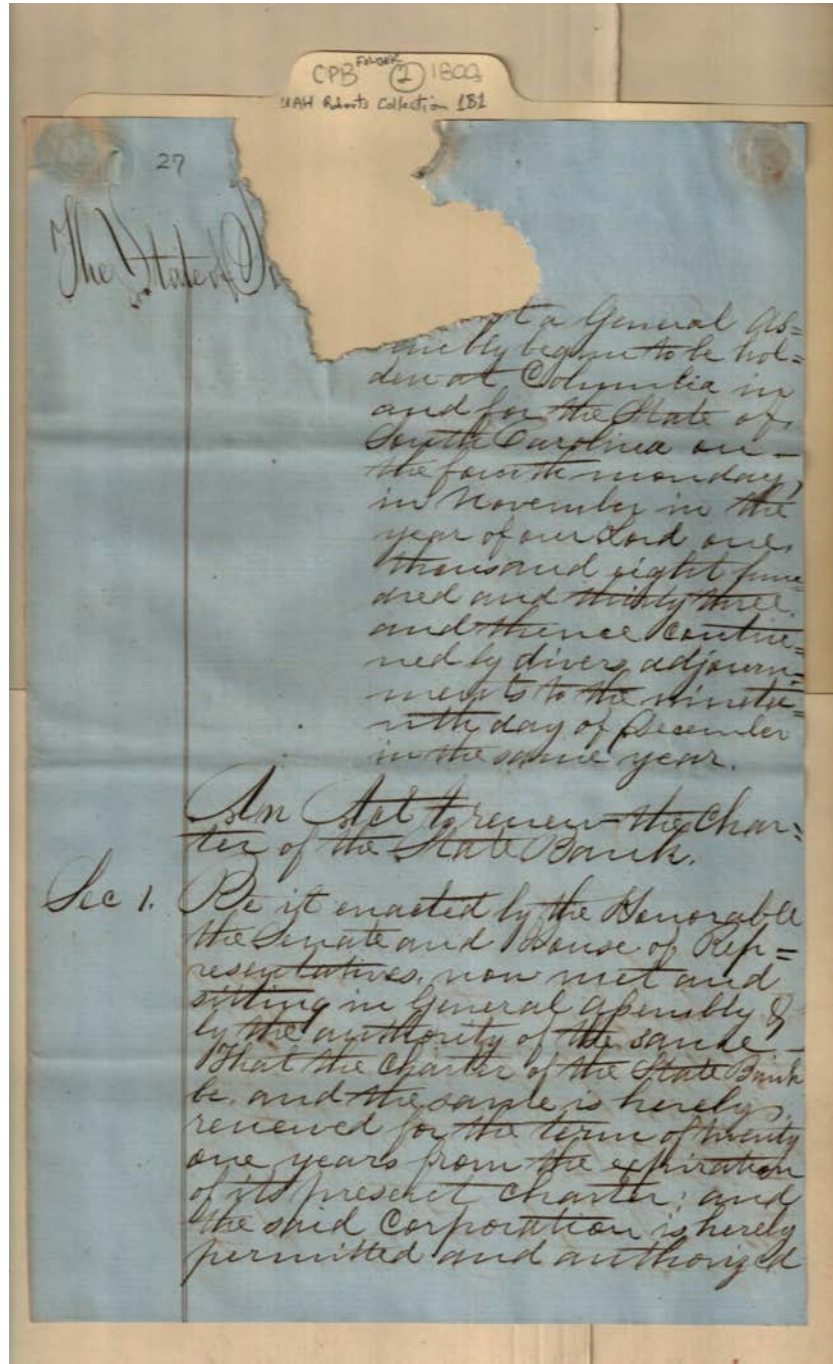 FOLDER
CPB 2 1802
UAH Roberts Collection 1B1
27
The State of So
at a General As=
sembly begun to be hol=
den at Columbia in
and for the State of
South Carolina on
the fourth monday,
in November in the
year of our Lord one
thousand eight hun=
dred and thirty three
and thence contin=
ued by divers adjourn=
ments to the ninete=
nth day of December
in the same year.
An Act to renew the Char=
ter of the State Bank.
Sec 1. Be it enacted by the Honorable
the Senate and House of Rep=
resentatives, now met and
sitting in General Assembly &
by the authority of the same -
That the Charter of the State Bank
be, and the same is hereby,
renewed for the term of twenty
one years from the expiration
of its present Charter; and
the said Corporation is hereby
permitted and authorized